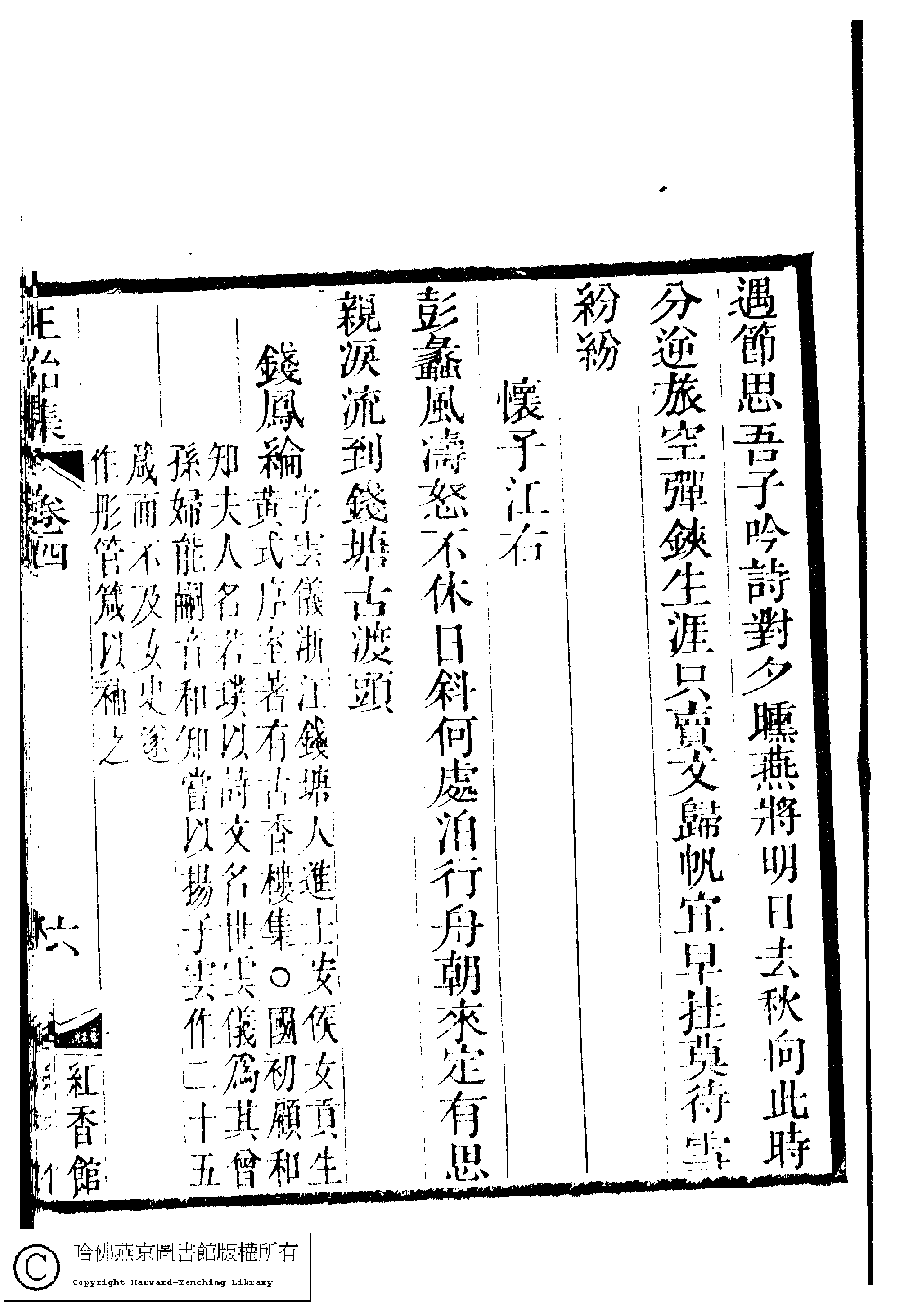 遇節思吾子吟詩對夕曛燕將明日去秋向此時
分逆旅空彈鋏生涯只賣文歸帆宜早挂莫待雪
紛紛
懷子江右
彭蠡風濤怒不休日斜何處泊行舟朝來定有思
親淚流到錢塘古渡頭
錢鳳綸
字雲儀浙江錢塘人進士安侯女貢生
黃式序室著有古香樓集○國初顧和
知夫人名若璞以詩文名世雲儀爲其曾
孫婦能嗣音和知嘗以揚子雲作二十五
箴而不及女史遂
作彤管箴以補之
正始集
卷四
六
紅香館
哈佛燕京圖書館版權所有
Copyright Harvard-Yenching Library